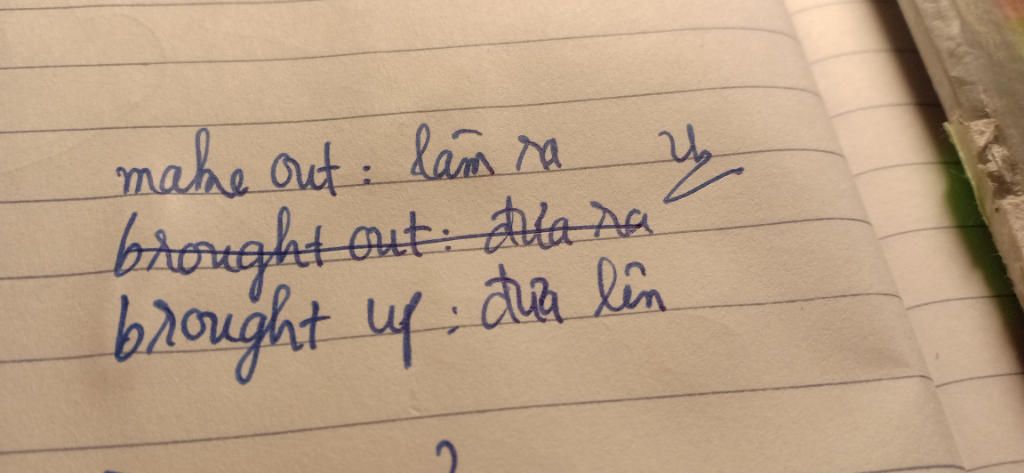 make out : lām ra
brought out : đưa ra
brought up : đưa lên
?